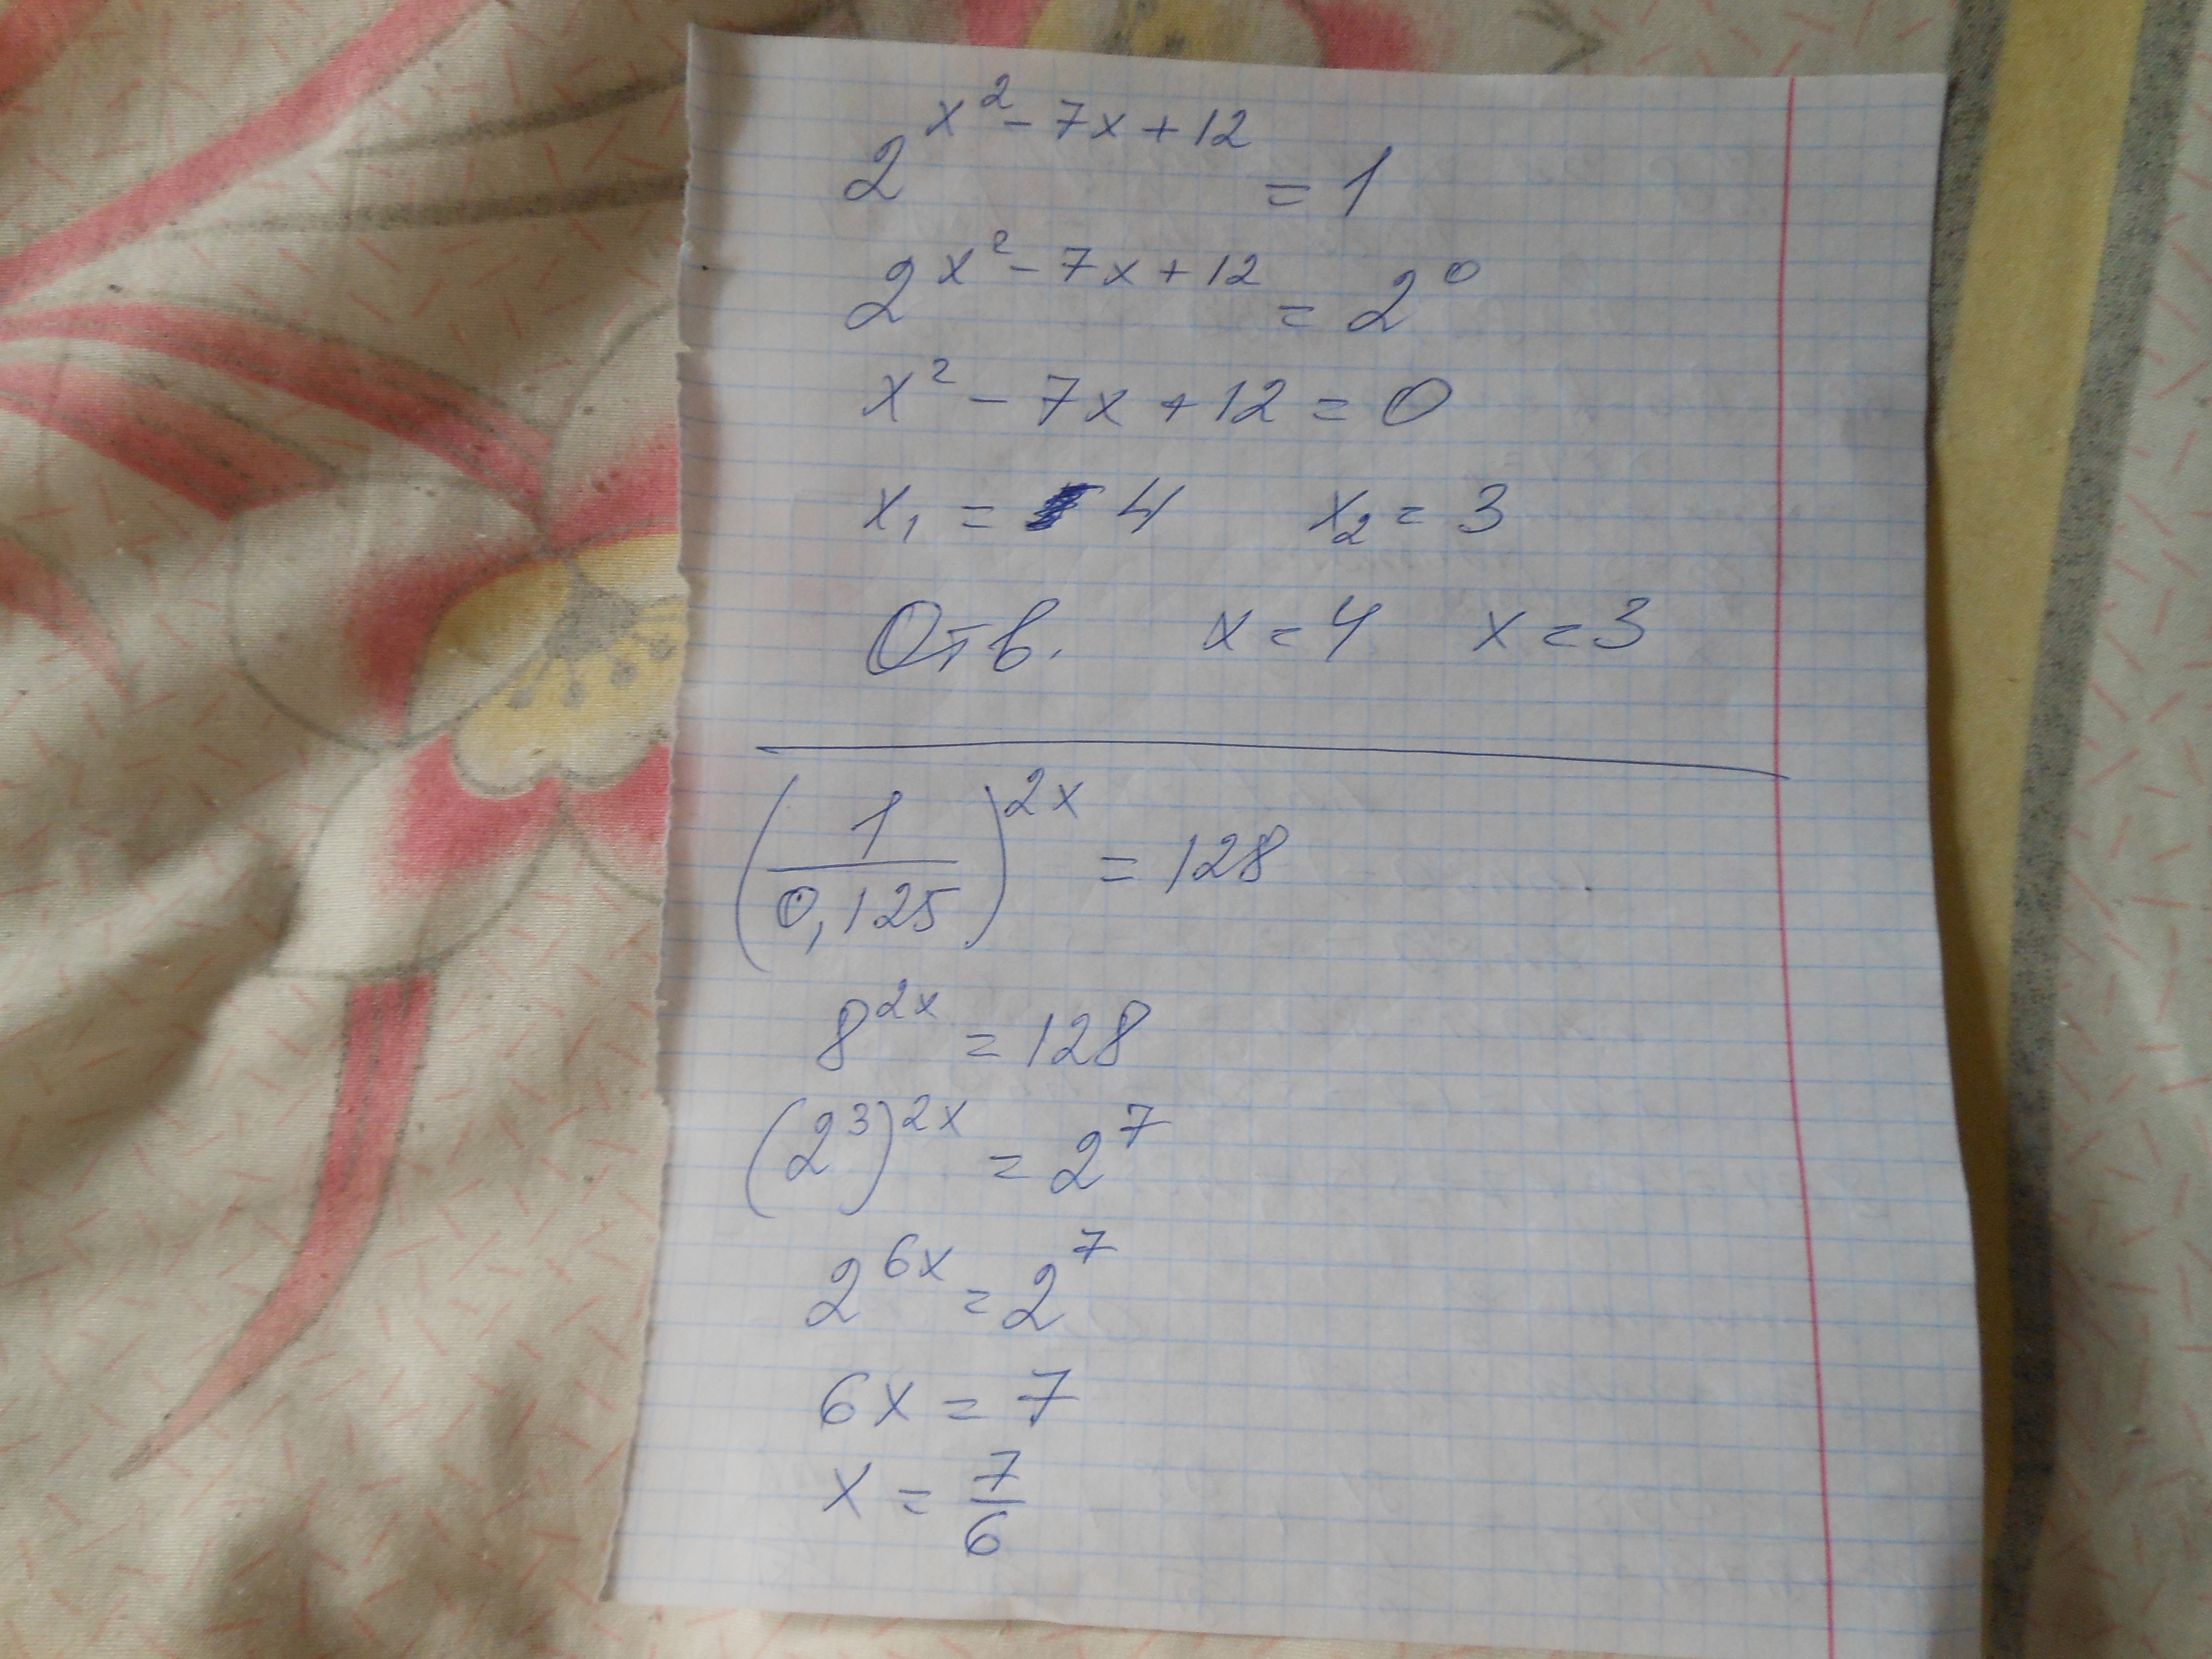 2^{x^2 - 7x + 12} = 1
2^{x^2 - 7x + 12} = 2^0
x^2 - 7x + 12 = 0
x_1 = 4 x_2 = 3
Отв. x = 4 x = 3
(1/0,125)^{2x} = 128
8^{2x} = 128
(2^3)^{2x} = 2^7
2^{6x} = 2^7
6x = 7
x = 7/6